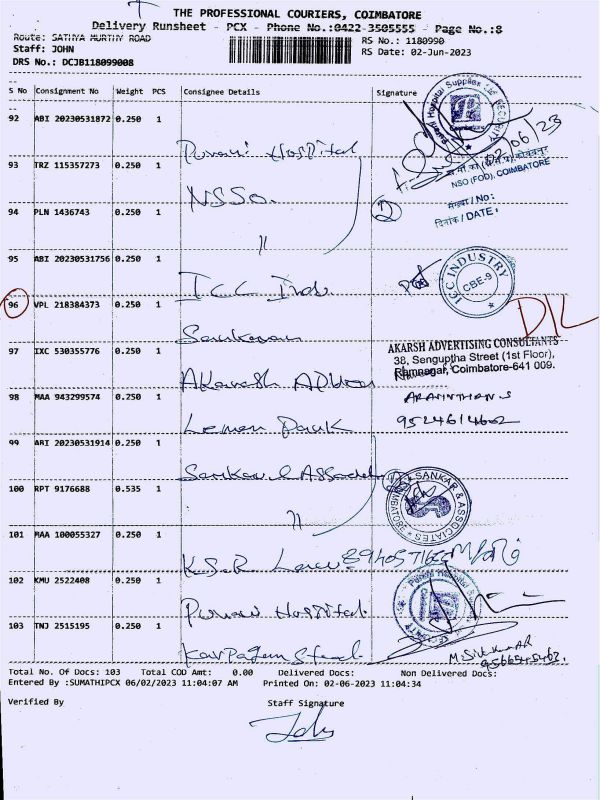 THE PROFESSIONAL COURIERS, COIMBATORE
Delivery Runsheet - PCX - Phone No.:0422-3505555 - Page No.:8
Route: SATHYA MURTHY ROAD
RS No.: 1180990
Staff: JOHN
RS Date: 02-Jun-2023
DRS No.: DCJB118099008
S No Consignment No Weight PCS Consignee Details Signature
92 ABI 20230531872 0.250 1
Purani Hospital
02/06/23
93 TRZ 115357273 0.250 1
NSSO.
NSO (FOD), COIMBATORE
संख्या / No:
दिनांक / DATE:
94 PLN 1436743 0.250 1
"
2
95 ABI 20230531756 0.250 1
ICC Inds
ICC INDUSTRY
CBE-9
96 VPL 218384373 0.250 1
Sankaran
D/L
97 IXC 530355776 0.250 1
AKARSH ADVERTISING CONSULTANTS
38, Senguptha Street (1st Floor),
Ramnagar, Coimbatore-641 009.
98 MAA 943299574 0.250 1
Lemon
ARAVINTHAN S
9524614602
99 ABI 20230531914 0.250 1
Sankar & Associates
SANKAR & ASSOCIATES
COIMBATORE
100 RPT 9176688 0.535 1
"
101 MAA 100055327 0.250 1
K.S.R
102 KMU 2522408 0.250 1
Purani Hospital
103 TNJ 2515195 0.250 1
Karpagam Steel
9566545463.
Total No. Of Docs: 103 Total COD Amt: 0.00 Delivered Docs: Non Delivered Docs:
Entered By :SUMATHIPCX 06/02/2023 11:04:07 AM Printed On: 02-06-2023 11:04:34
Verified By Staff Signature
John